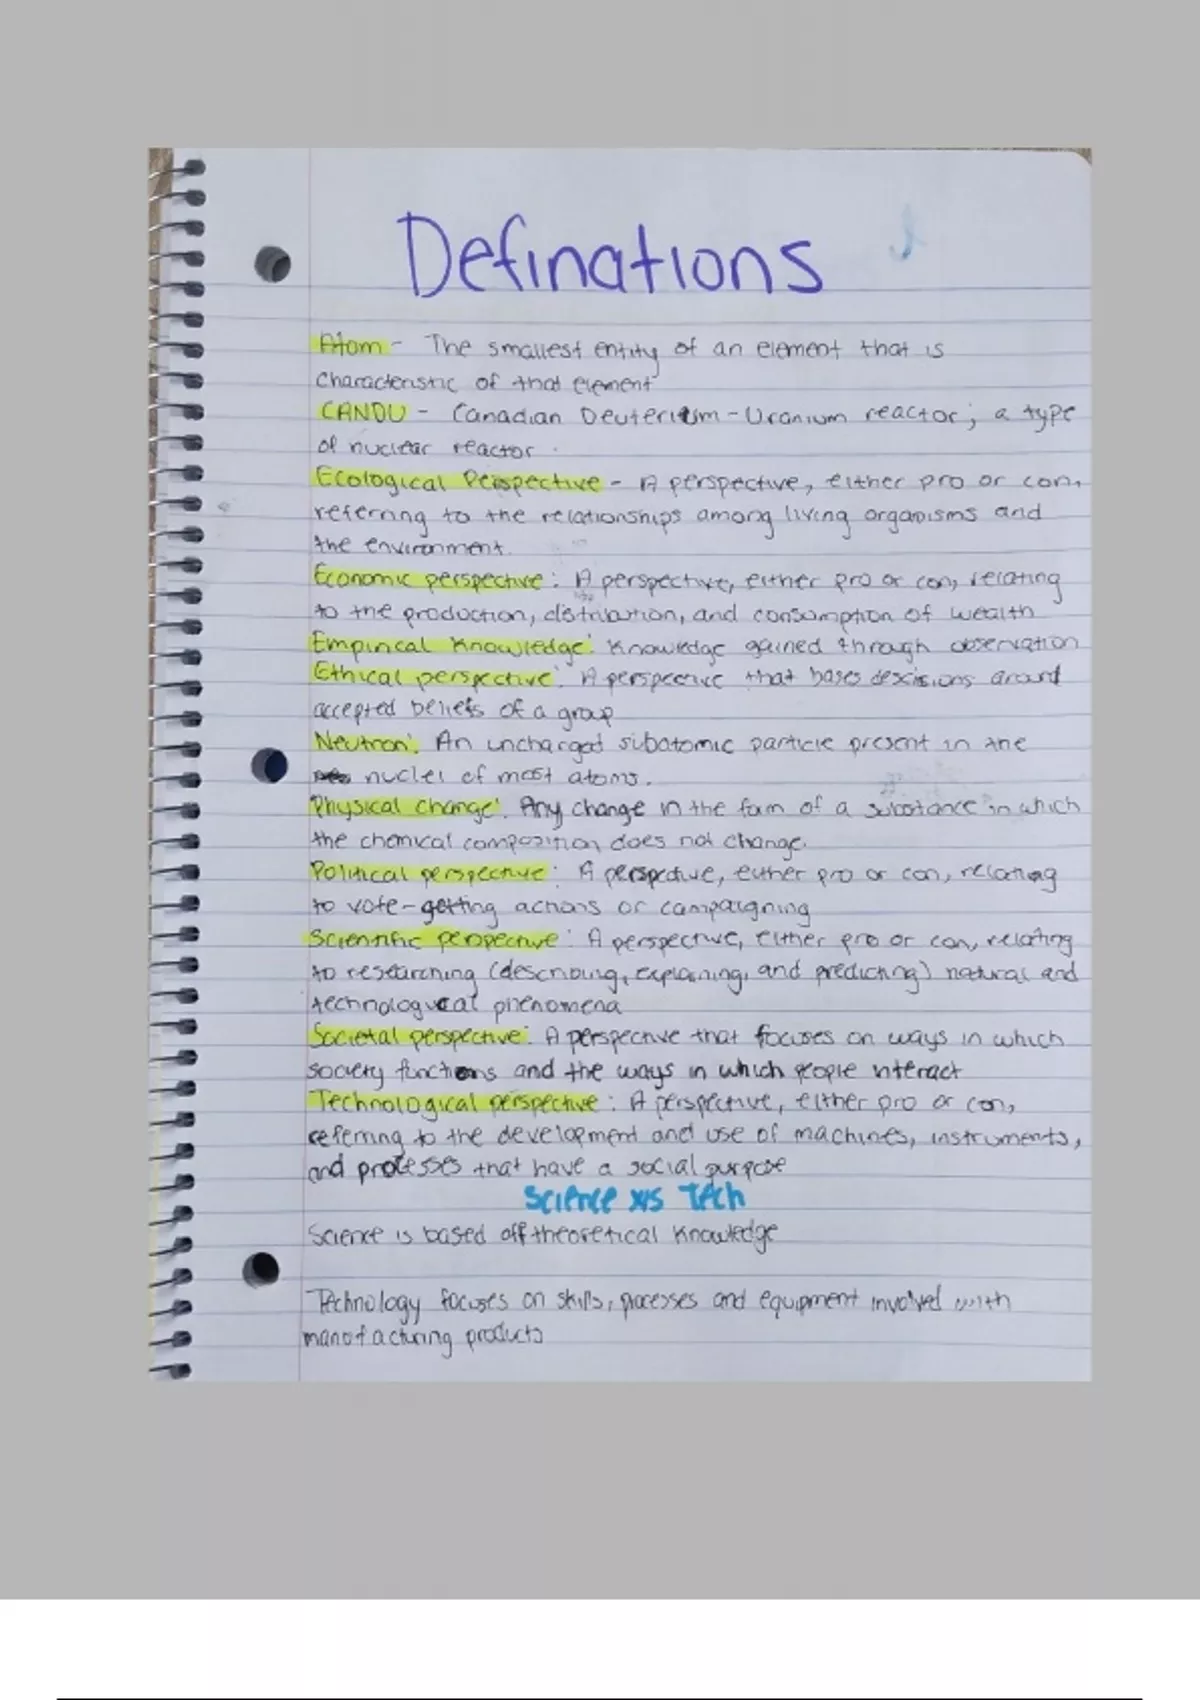 Definations
Atom - The smallest entity of an element that is
characteristic of that element
CANDU - Canadian Deuterium-Uranium reactor; a type
of nuclear reactor.
Ecological Perspective - A perspective, either pro or con,
referring to the relationships among living organisms and
the environment.
Economic perspective: A perspective, either pro or con, relating
to the production, distribution, and consumption of wealth
Empirical Knowledge: Knowledge gained through observation
Ethical perspective: A perspective that bases descisions around
accepted beliefs of a group
Neutron: An uncharged subatomic particle present in the
nuclei of most atoms.
Physical change: Any change in the form of a substance in which
the chemical composition does not change.
Political perspective: A perspective, either pro or con, relating
to vote-getting actions or campaigning
Scientific perspective: A perspective, either pro or con, relating
to researching (describing, explaining, and predicting) natural and
technological phenomena
Societal perspective: A perspective that focuses on ways in which
society functions and the ways in which people interact
Technological perspective: A perspective, either pro or con,
referring to the development and use of machines, instruments,
and processes that have a social purpose
Science vs Tech
Science is based off theoretical knowledge
Technology focuses on skills, processes and equipment involved with
manufacturing products